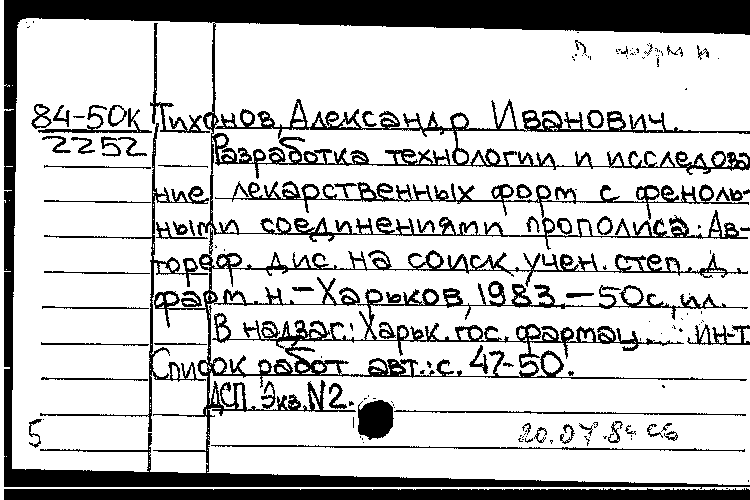 Д. фарм н.
84-50К Тихонов, Александр Иванович.
2252 Разработка технологии и исследова
ние лекарственных форм с феноль-
ными соединениями прополиса: Ав-
тореф. дис. на соиск. учен. степ. д.
фарм. н. - Харьков, 1983. - 50с., ил.
В надзаг.: Харьк. гос. фармац. ин-т
Список работ авт.: с. 47-50.
ДСП. Экз. N2.
5 20.07.84